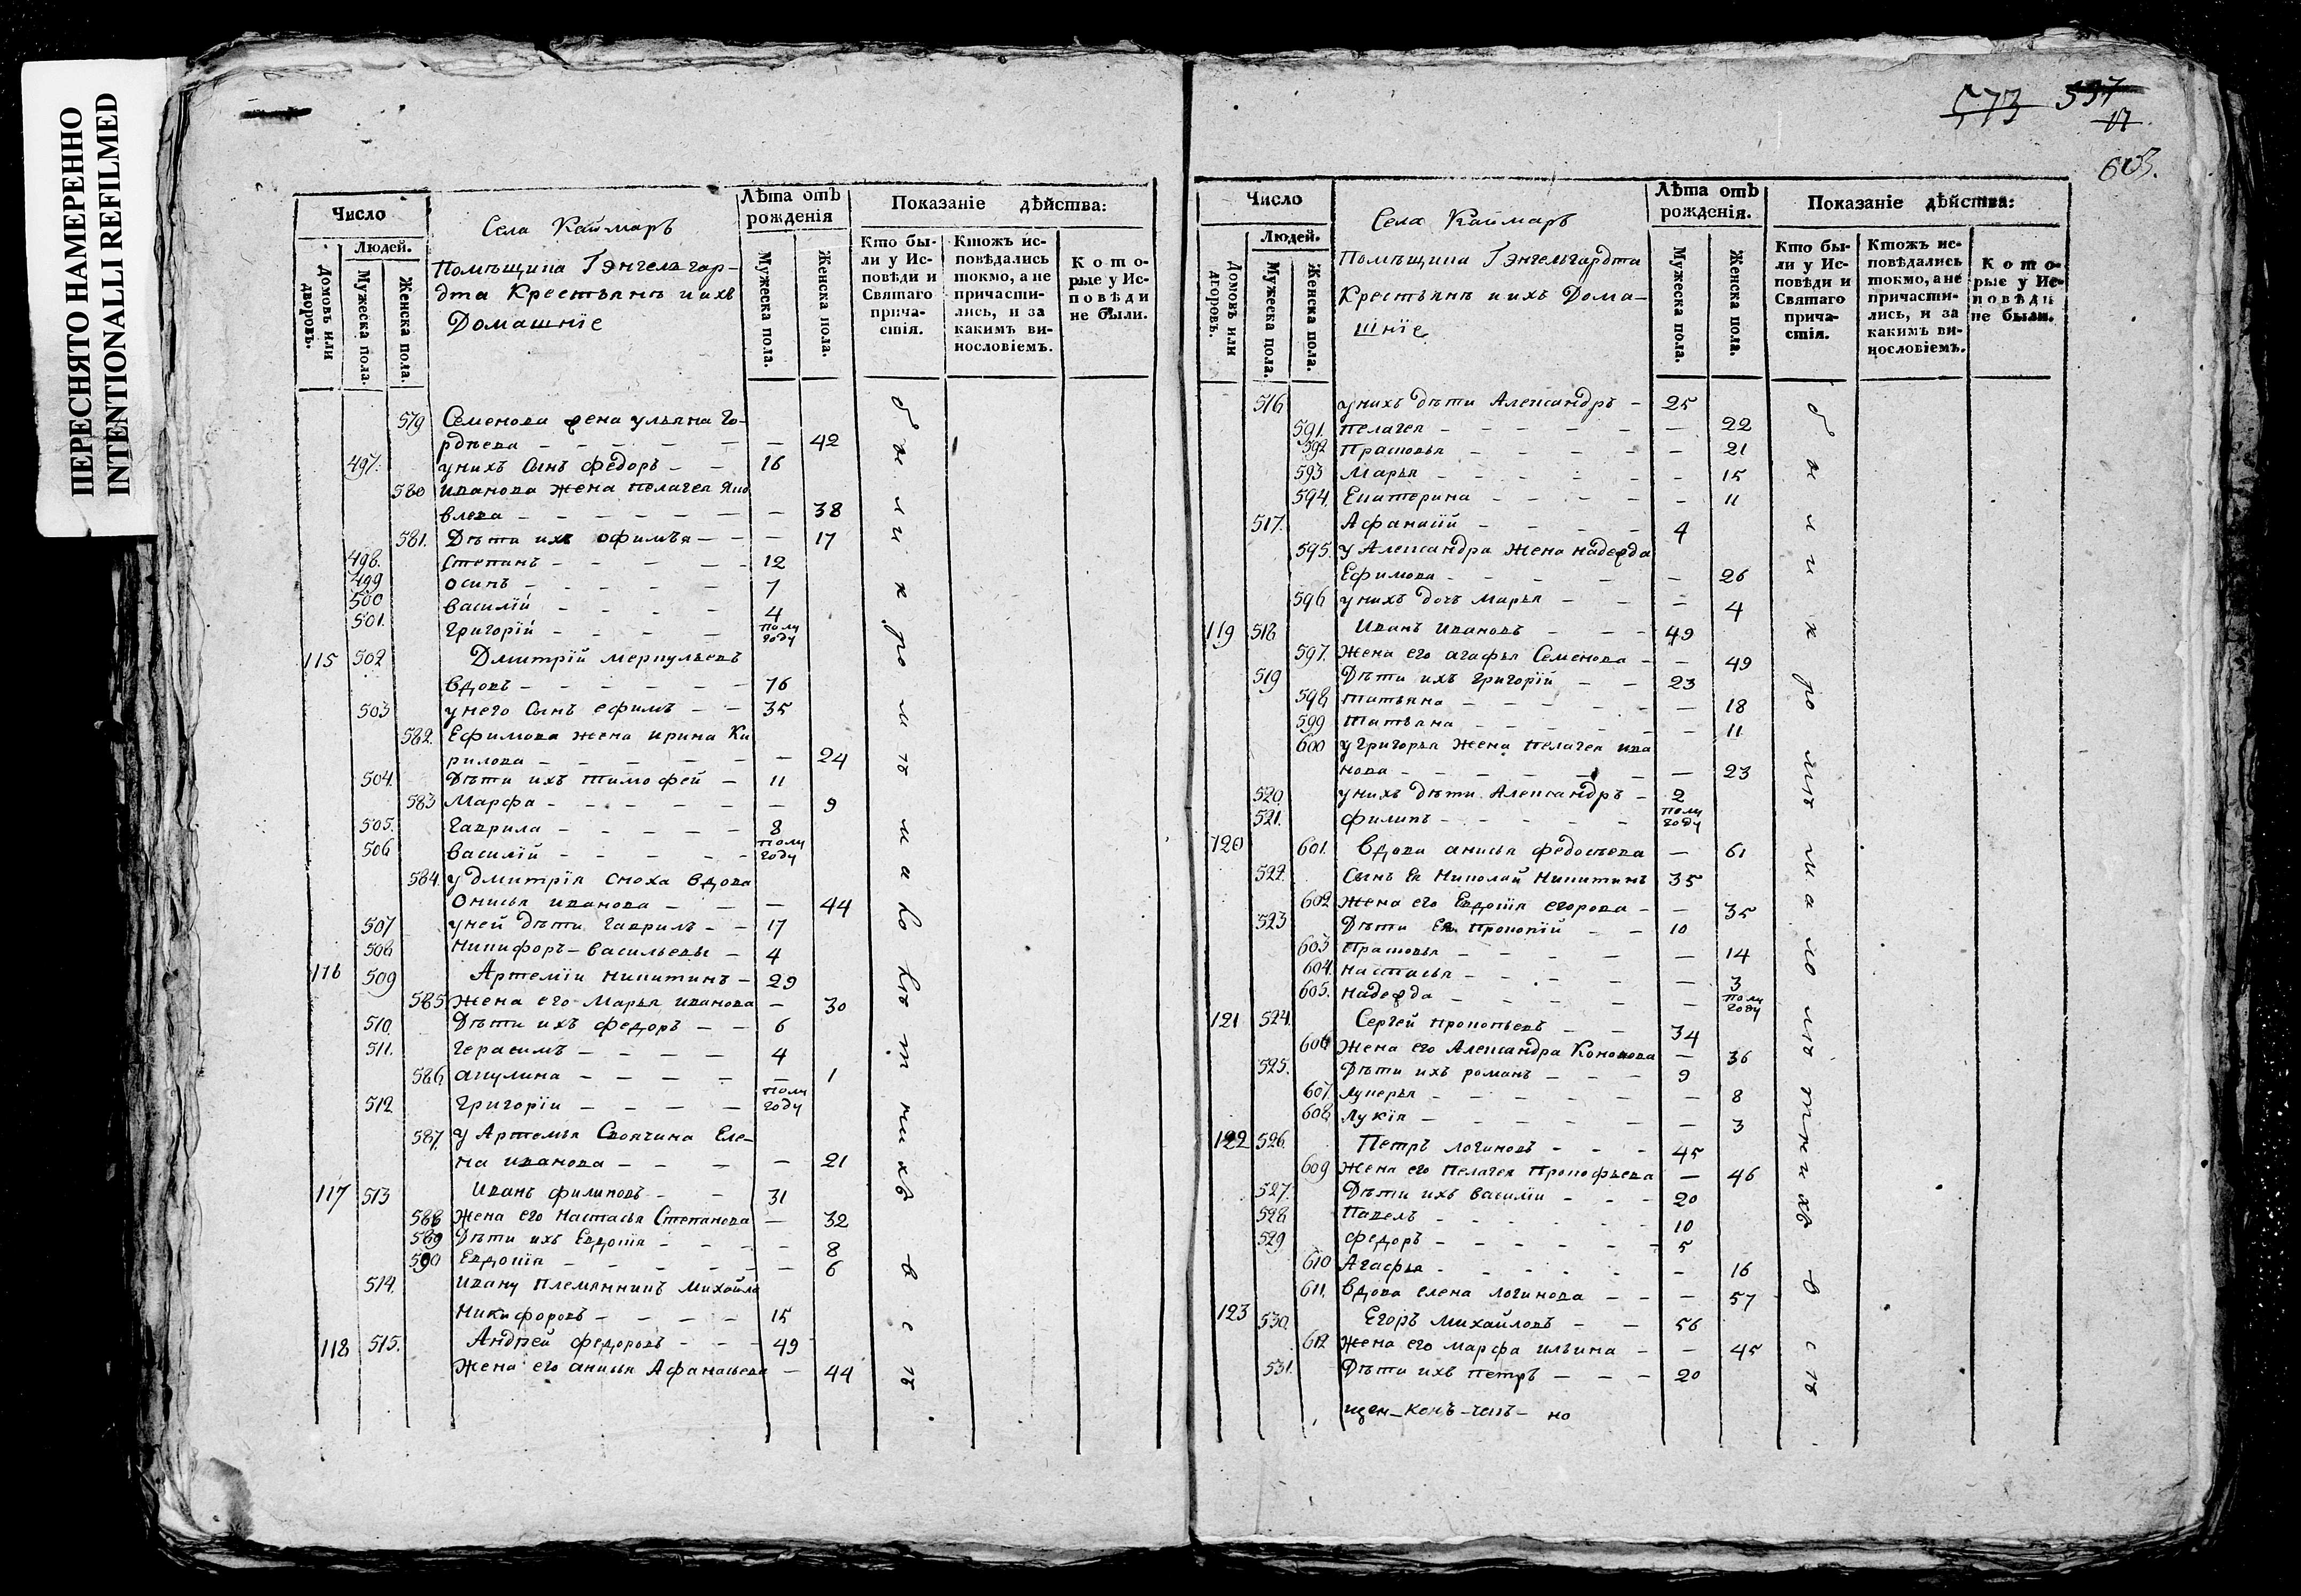 ПЕРЕСНЯТО НАМЕРЕННО
INTENTIONALLI REFILMED
573 597
603.
Число
Людей.
Домовъ или дворовъ.
Мужеска пола.
Женска пола.
Села Каймаръ
Помѣщика Гэнгельгар-
дта Крестьянъ и ихъ
Домашніе
Лѣта отъ рожденія
Мужеска пола.
Женска пола.
Показаніе дѣйства:
Кто бы-
ли у Ис-
повѣди и
Святаго
прича-
стія.
Ктожъ ис-
повѣдались
токмо, а не
причасти-
лись, и за
какимъ ви-
нословіемъ.
Кото-
рые у Ис-
повѣди
не были.
579 Семенова жена ульяна Го-
рдѣева — 42
497. унихъ Сынъ федоръ — 16
580 иванова жена пелагея Яко
влева — 38
581. Дѣти ихъ офимья — 17
498. степанъ — 12
499 осипъ — 7
500 василій — 4
501. григорій — полу году
115 502 Дмитрій меркульевъ
вдовъ — 76
503 унего Сынъ ефимъ — 35
582. Ефимова жена ирина Ки
рилова — 24
504. Дѣти ихъ тимофей — 11
583 Марфа — 9
505. гаврила — 8
506 василій — полу году
584. у дмитрія сноха вдова
Онисья иванова — 44
507 уней дѣти гаврилъ — 17
508 никифоръ — васильевы — 4
116 509 Артемій никитинъ — 29
585 Жена его Марья иванова — 30
510. Дѣти ихъ федоръ — 6
511. герасимъ — 4
586 акулина — 1
512 григоріи — полу году
587. у Артемья Своячина Еле-
на иванова — 21
117 513 Иванъ филиповъ — 31
588 Жена его настасья Степанова — 32
589 Дѣти ихъ Евдокія — 8
590 Евдокія — 6
514. ивану племянникъ михайла
никифоровъ — 15
118 515. Андрей федоровъ — 49
Жена его анисья Афанасьева — 44
Число
Людей.
Домовъ или дворовъ.
Мужеска пола.
Женска пола.
Села Каймаръ
Помѣщика Гэнгельгардта
Крестьянъ и ихъ Дома-
шніе
Лѣта отъ рожденія.
Мужеска пола.
Женска пола.
Показаніе дѣйства:
Кто бы-
ли у Ис-
повѣди и
Святаго
прича-
стія.
Ктожъ ис-
повѣдались
токмо, а не
причасти-
лись, и за
какимъ ви-
нословіемъ.
Кото-
рые у Ис-
повѣди
не были.
516 унихъ дѣти Александръ — 25
591. пелагея — 22
592 Прасковья — 21
593 Марья — 15
594. Екатерина — 11
517. Афанасій — 4
595. у Александра жена надежда
Ефимова — 26
596 унихъ дочь Марья — 4
119 518 Иванъ ивановъ — 49
597. Жена его агафья Семенова — 49
519 Дѣти ихъ григорій — 23
598 татьяна — 18
599 татьяна — 11
600 у григорья жена пелагея ива
нова — 23
520. унихъ дѣти Александръ — 2
521. филипъ — полу году
120 601. Вдова анисья федосѣева — 61
522. Сынъ Ея николай никитинъ 35
602 Жена его Евдокія егорова — 35
523 Дѣти Ея прокопій — 10
603 Прасковья — 14
604. настасья — 3
605. надежда — полу году
121 524. Сергей прокопьевъ — 34
606 Жена его Александра Кононова — 36
525. Дѣти ихъ романъ — 9
607. лукерья — 8
608 лукія — 3
122 526. Петръ логиновъ — 45
609 Жена его Пелагея Прокофьева — 46
527. Дѣти ихъ василіи — 20
528 Павелъ — 10
529 федоръ — 5
610 Агафья — 16
611. вдова елена логинова — 57
123 530. Егоръ михайловъ — 56
612 Жена его марфа ильина — 45
531. Дѣти ихъ петръ — 20